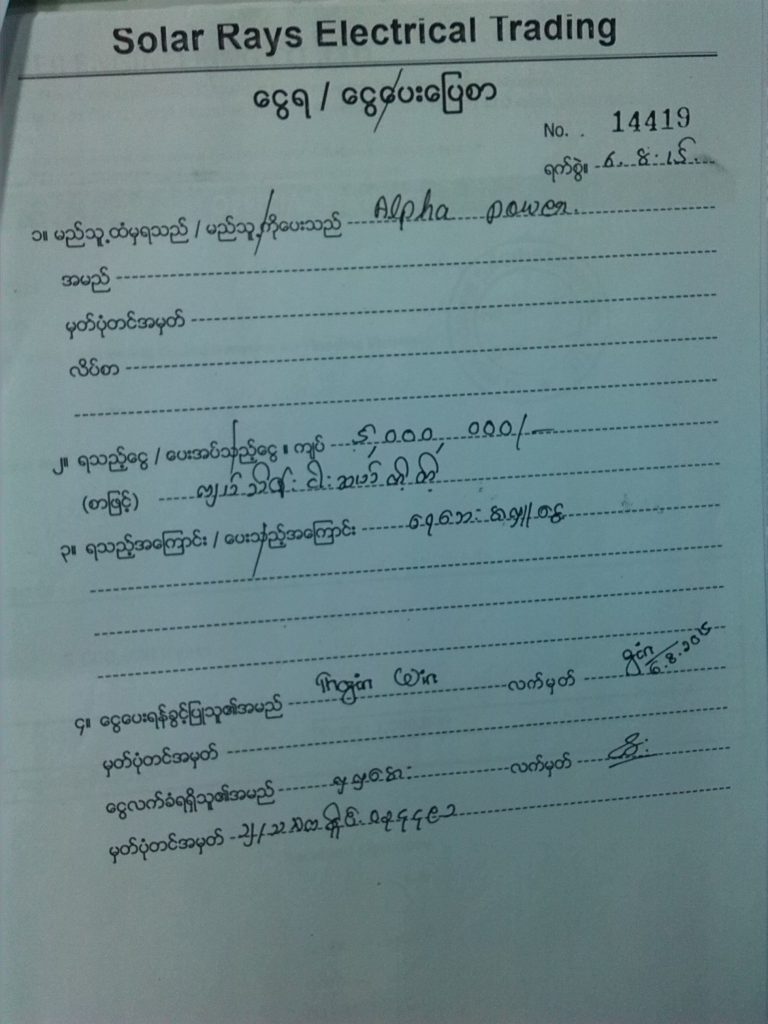 Solar Rays Electrical Trading
ငွေရ / ငွေပေးပြေစာ
No. . 14419
ရက်စွဲ။ ၆. ၈. ၁၅.
၁။ မည်သူ့ထံမှရသည် / မည်သူ့ကိုပေးသည် Alpha power.
အမည်
မှတ်ပုံတင်အမှတ်
လိပ်စာ
၂။ ရသည့်ငွေ / ပေးအပ်သည့်ငွေ ။ ကျပ် ၅,၀၀၀,၀၀၀/-
(စာဖြင့်) ကျပ် သိန်း ငါးဆယ် တိတိ
၃။ ရသည့်အကြောင်း / ပေးသည့်အကြောင်း ရေဘေး အလှူငွေ
၄။ ငွေပေးရန်ခွင့်ပြုသူ၏အမည် Thgián Win လက်မှတ် 6.8.2015
မှတ်ပုံတင်အမှတ်
ငွေလက်ခံရရှိသူ၏အမည် လက်မှတ်
မှတ်ပုံတင်အမှတ်